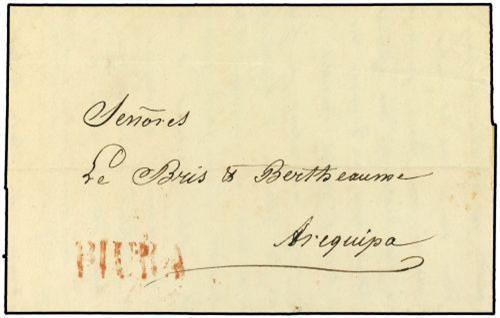 Señores
Le Bris & Bertheaume
Arequipa
PIURA